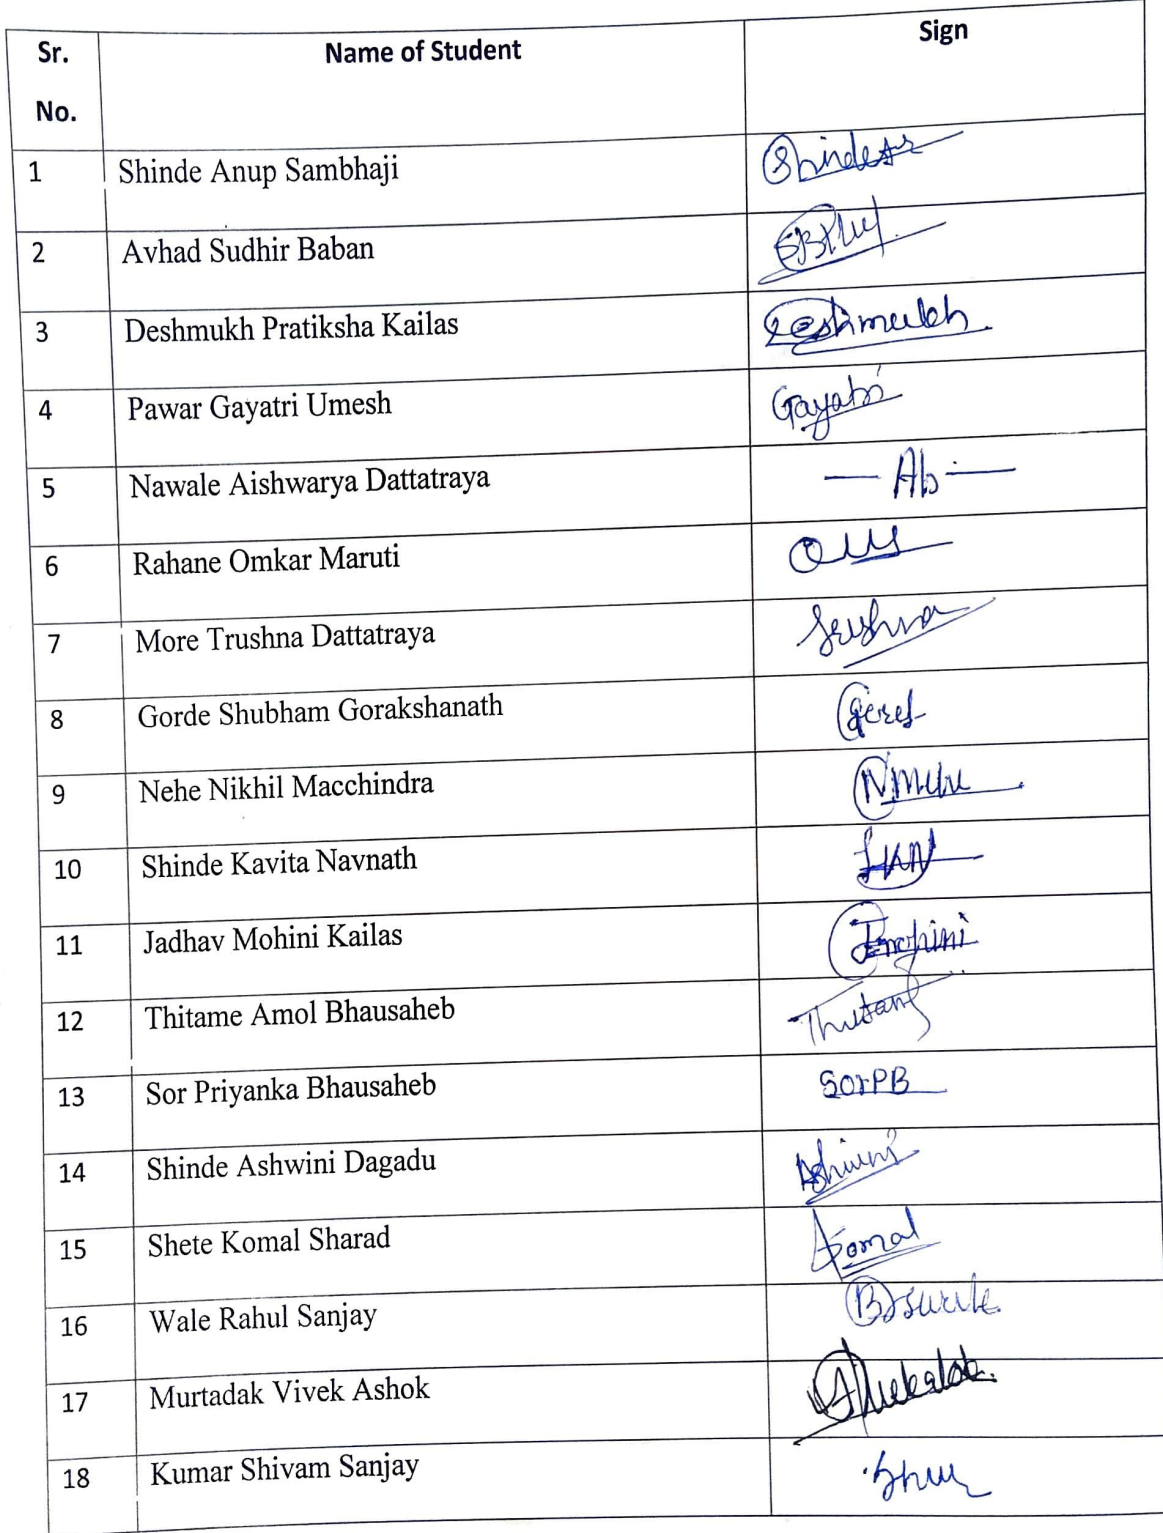 Sr. No. Name of Student Sign
1 Shinde Anup Sambhaji Shinde AS
2 Avhad Sudhir Baban
3 Deshmukh Pratiksha Kailas Deshmukh.
4 Pawar Gayatri Umesh Gayatri
5 Nawale Aishwarya Dattatraya — Ab —
6 Rahane Omkar Maruti
7 More Trushna Dattatraya Trushna
8 Gorde Shubham Gorakshanath
9 Nehe Nikhil Macchindra
10 Shinde Kavita Navnath SKN
11 Jadhav Mohini Kailas Jmohini
12 Thitame Amol Bhausaheb
13 Sor Priyanka Bhausaheb Sor PB
14 Shinde Ashwini Dagadu Ashwini
15 Shete Komal Sharad Komal
16 Wale Rahul Sanjay
17 Murtadak Vivek Ashok
18 Kumar Shivam Sanjay